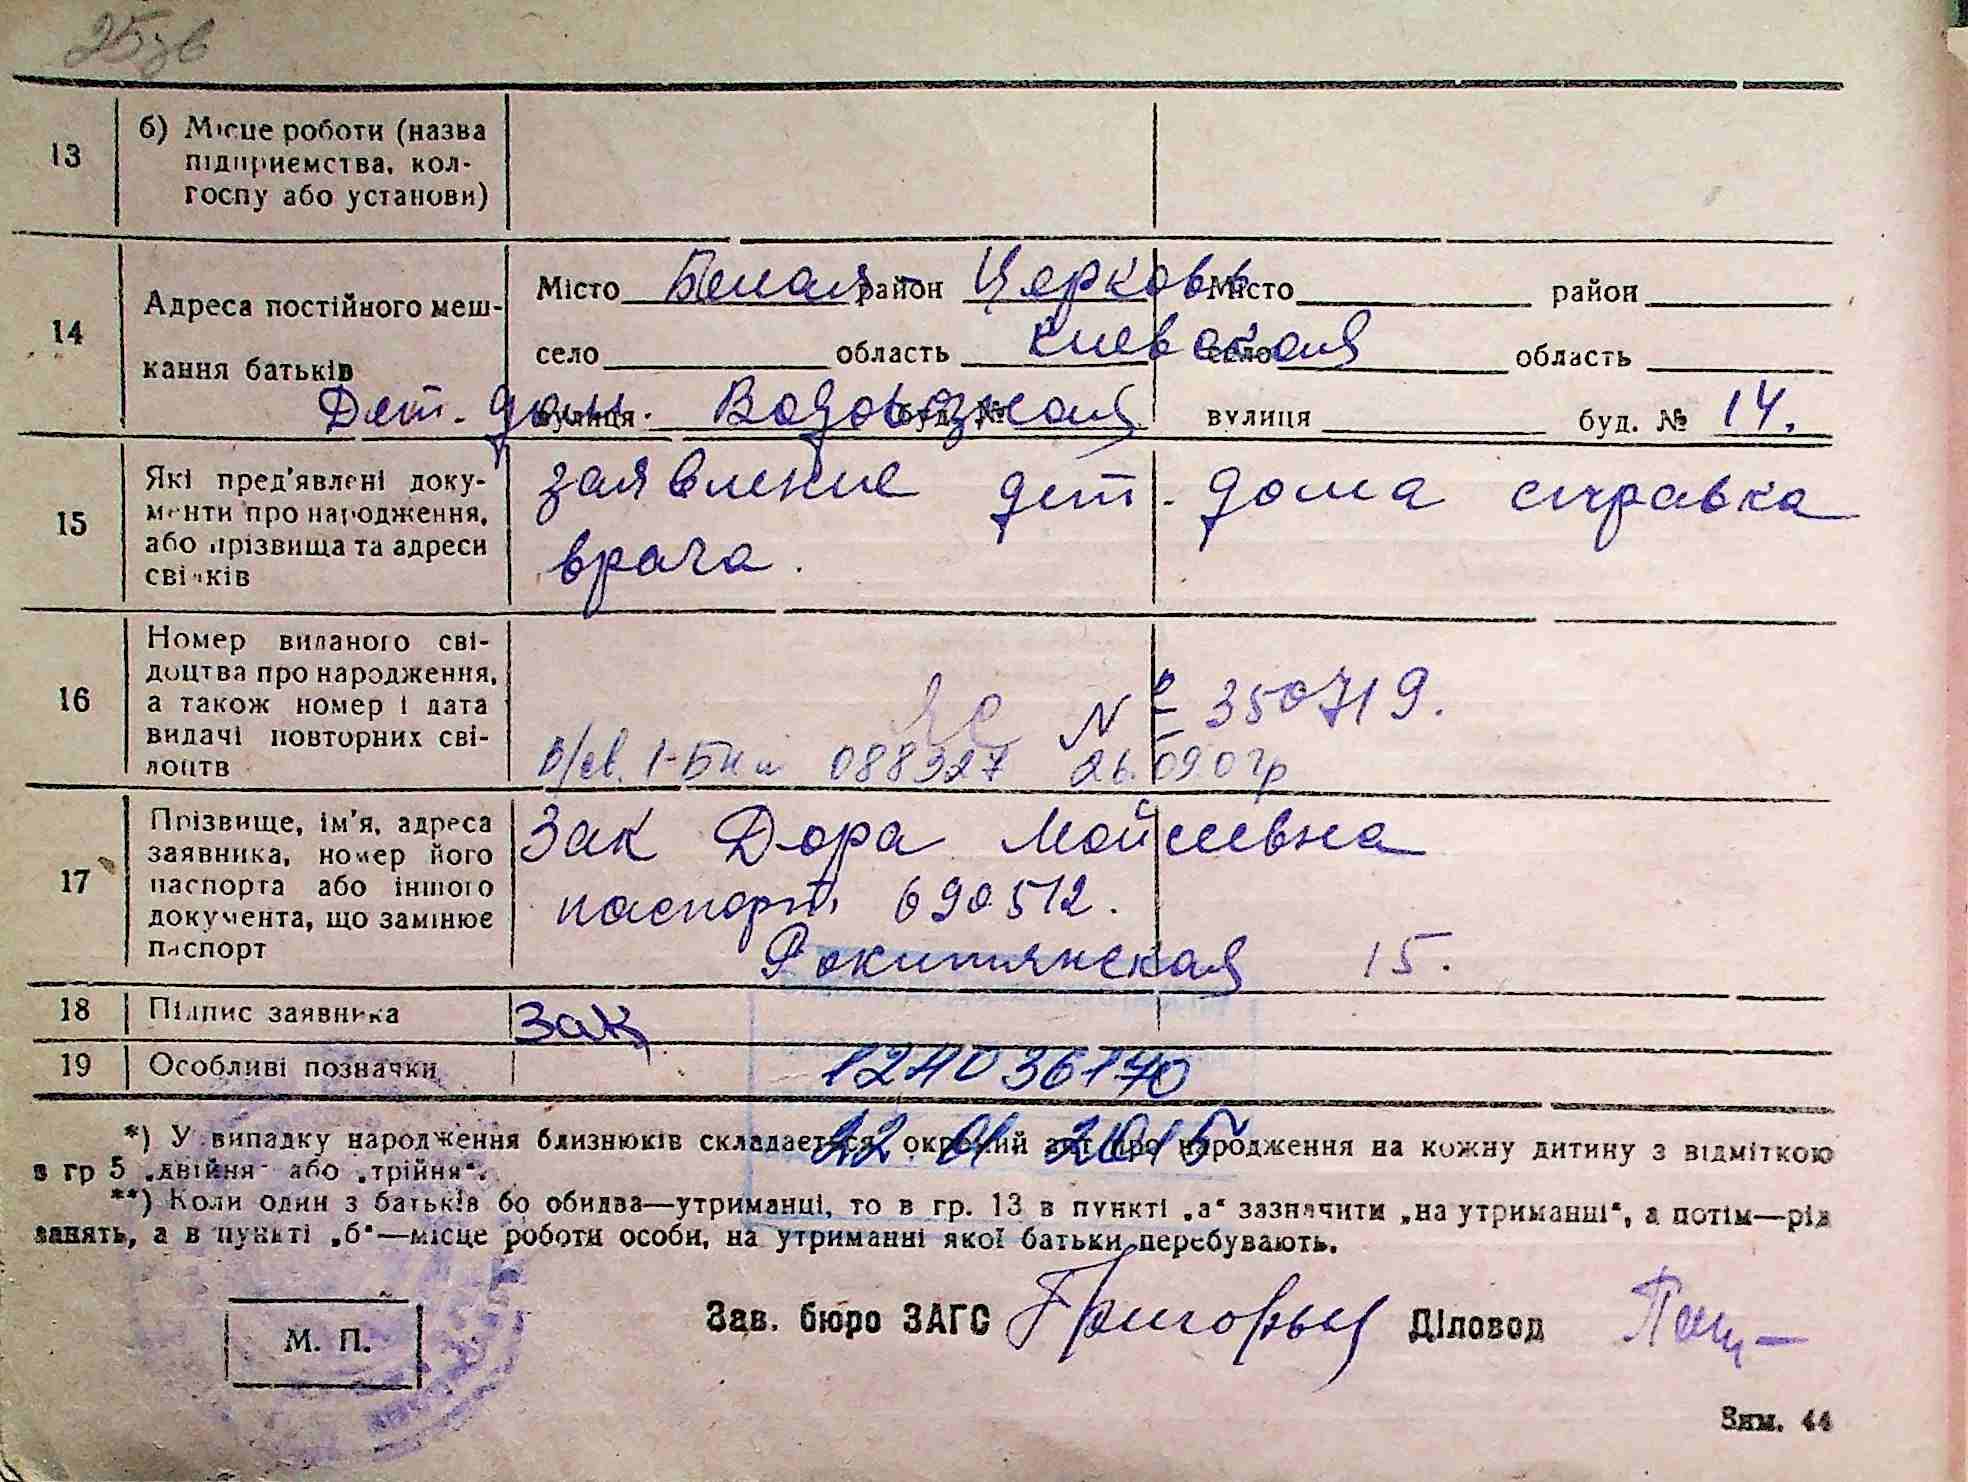 25 зв
13
б) Місце роботи (назва
підприємства, кол-
госпу або установи)
14
Адреса постійного меш-
кання батьків
Місто Белая район Церковь Місто район
село область Киевская село область
Дет. дом. вулиця Водовозная буд. № вулиця буд. № 14.
15
Які пред'явлені доку-
менти про народження,
або прізвища та адреси
свідків
заявление дет. дома справка
врача.
16
Номер виданого сві-
доцтва про народження,
а також номер і дата
видачі повторних сві-
доцтв
№ 350719.
088327 26.090 гр
17
Прізвище, ім'я, адреса
заявника, номер його
паспорта або іншого
документа, що замінює
паспорт
Зак Дора Мойсеевна
паспорт 690512.
Рокитянская 15.
18
Підпис заявника
Зак
19
Особливі позначки
22 01 2015
*) У випадку народження близнюків складається окремий акт про народження на кожну дитину з відміткою
в гр 5 „двійня“ або „трійня“.
**) Коли один з батьків бо обидва—утриманці, то в гр. 13 в пункті „а“ зазначити „на утриманні“, а потім—рід
занять, а в пункті „б“—місце роботи особи, на утриманні якої батьки перебувають.
М. П.
Зав. бюро ЗАГС Діловод
Зям. 44